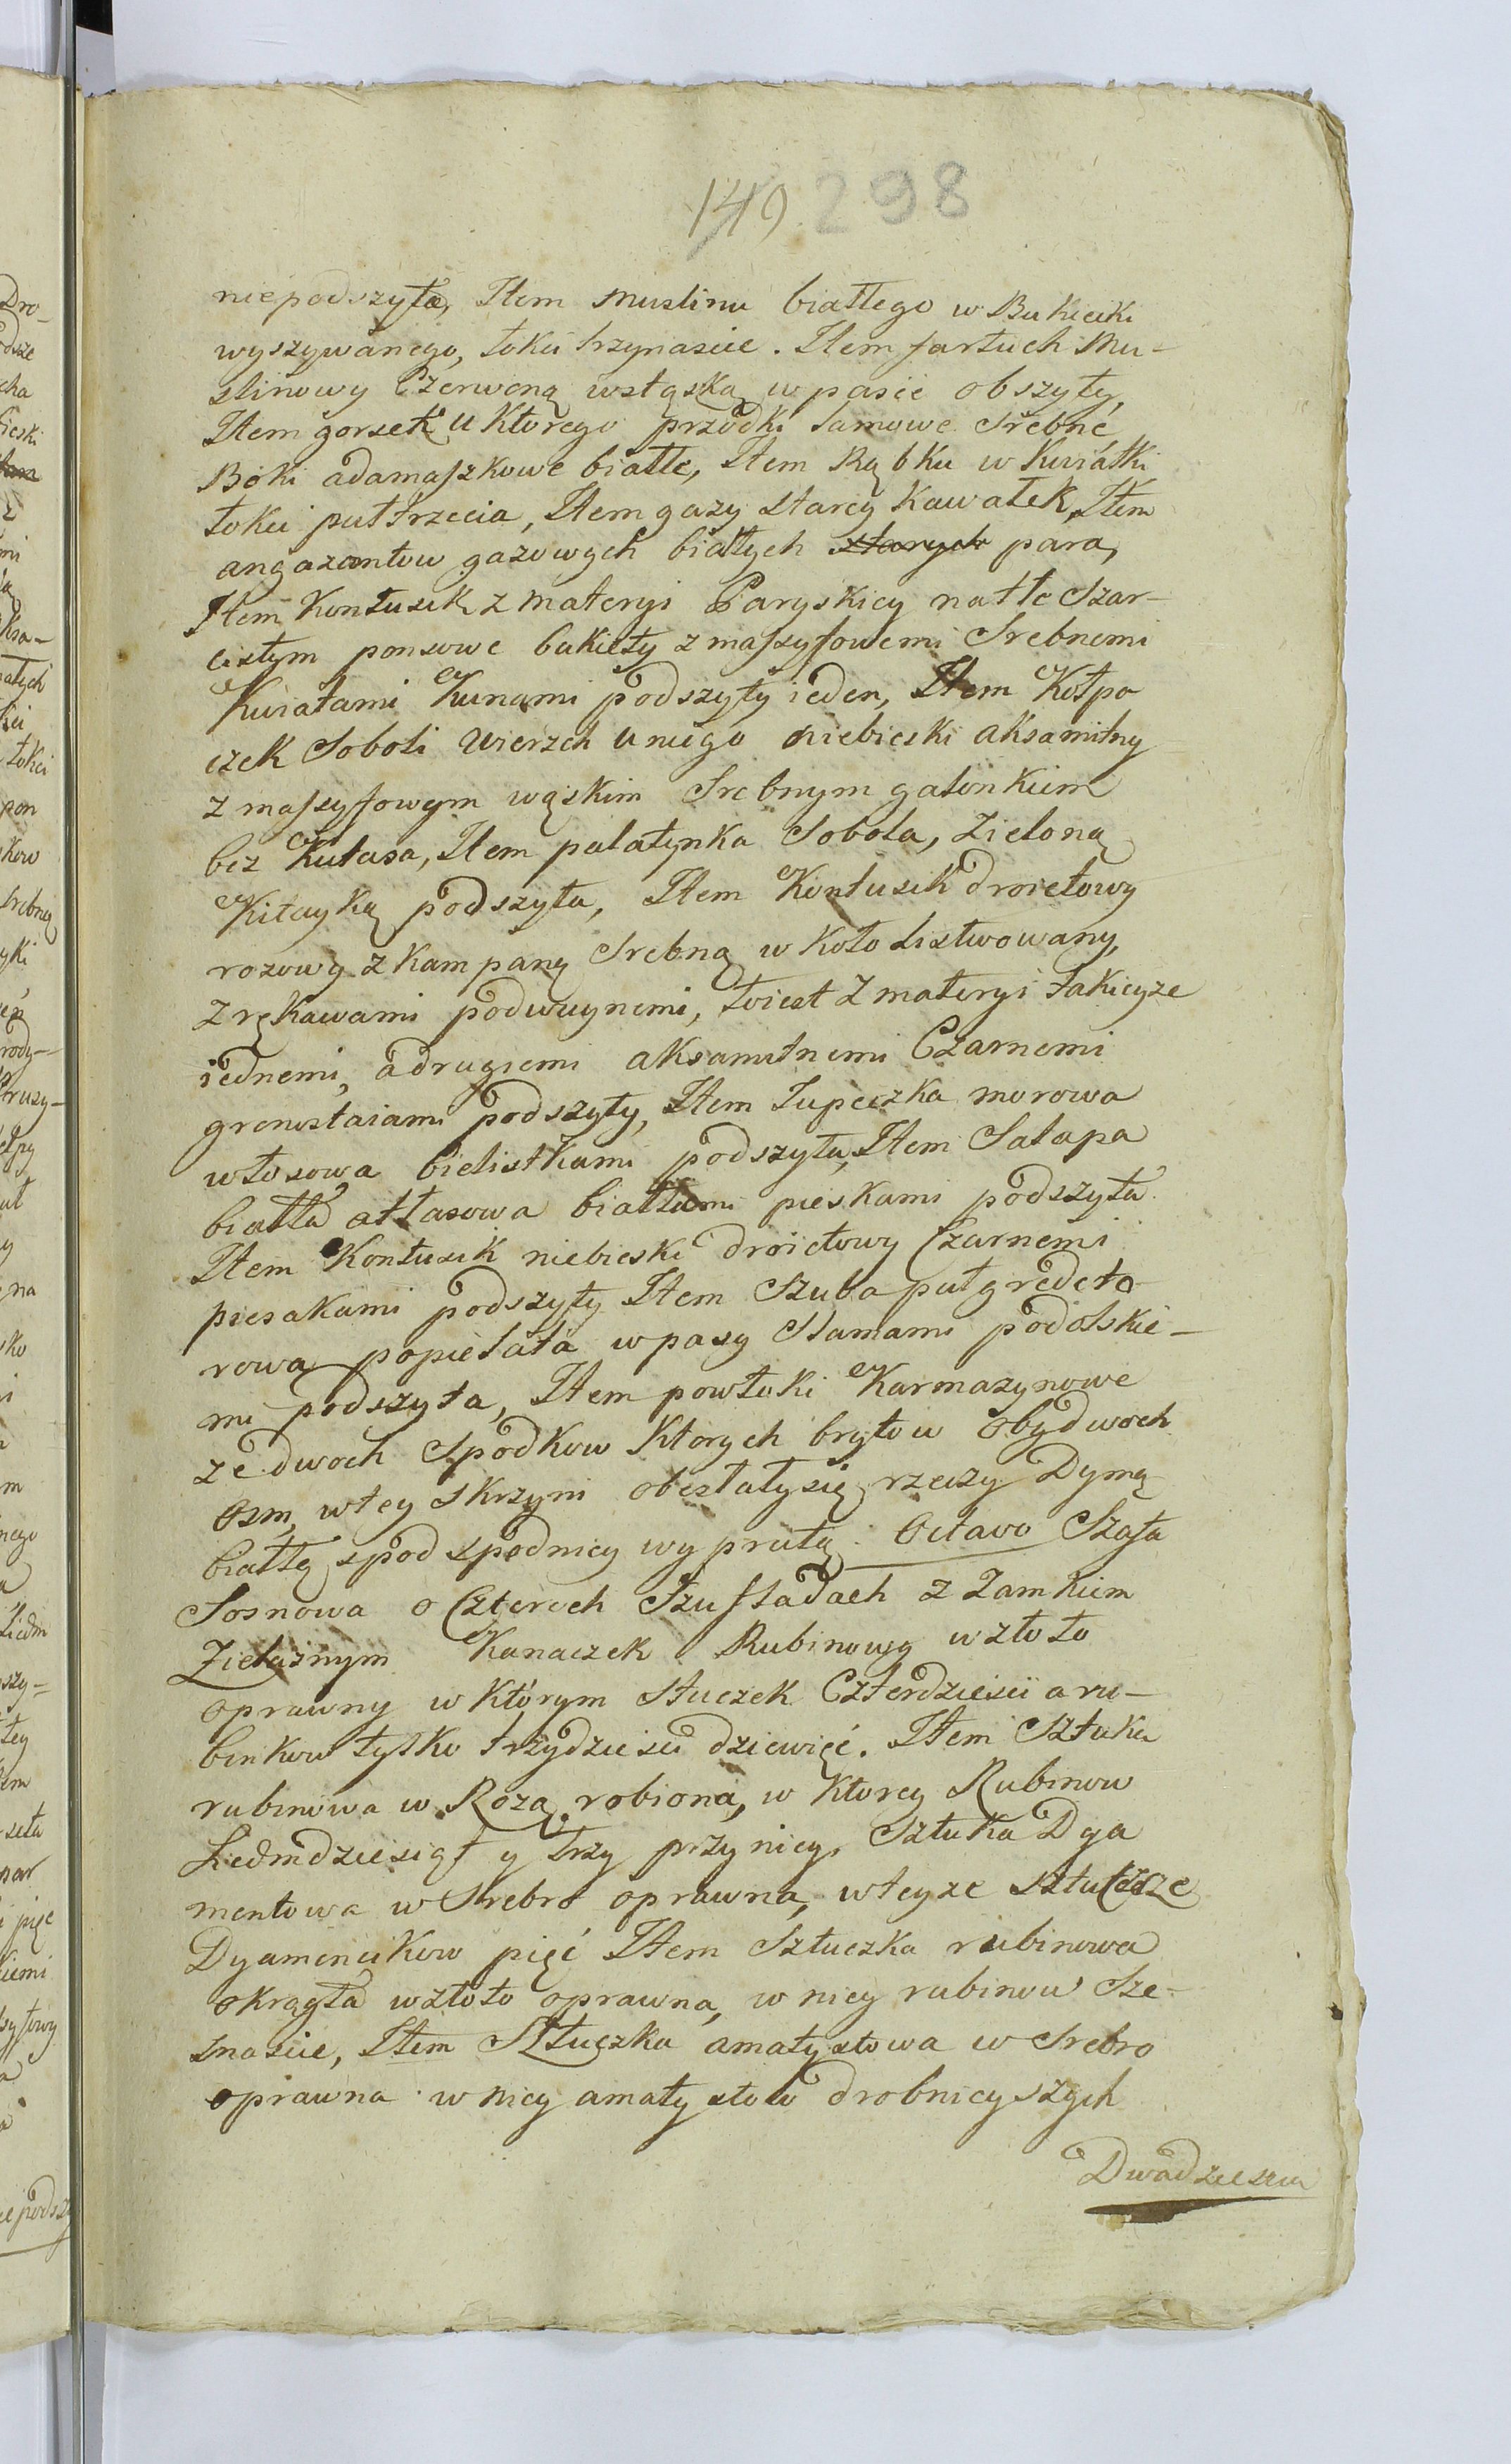 149. 298
niepodszyta, Item muslinu białłego w Bukieciki
wyszywanego, łokci trzynascie. Item fartuch Mu-
slinowy Czerwoną wstąską w pasie obszyty,
Item gorset u ktorego przodki lamowe Srebne,
Boki adamaszkowe białłe, Item Rąbku w kwiatki
łokci puł trzecia, Item gazy starey kawałek, Item
angazantow gazowych białłych starych para,
Item Kontusik z materyi Paryskiey na tle Szar-
cistym ponsowe bukiety z massyfowemi Srebnemi
Kwiatami Kunami podszyty ieden, Item Kołpa
czek Soboli Wierzch u niego niebieski aksamitny
z massyfowym wąskim Srebnym galonkiem
bez Kutasa, Item palatynka Sobola, Zieloną
Kitayką podszyta, Item Kontusik droietowy
rozowy z kampaną Srebną w koło listwowany,
z rękawami podwuynemi, toiest z materyi takieyze
iednemi, a drugiemi aksamitnemi Czarnemi
gronostaiami podszyty, Item Jupeczka morowa
włosowa bielistkami podszyta, Item Salapa
białła atłasowa białłemi pieskami podszyta
Item Kontusik niebieski droietowy Czarnemi
piesakami podszyty Item Szuba puł gredeto-
rowa popielata w pasy Slamami podolskie-
mi podszyta, Item powłoki Karmazynowe
ze dwoch Spodkow ktorych brytow obydwoch
osm, w tey skrzyni obestały się rzeczy Dymą
białłę spod spodnicy wyprutą. Octavo Szafa
Sosnowa o Czteroch Szufladach z Zamkiem
Zielaznym Kanaczek Rubinowy w złoto
oprawny w którym sztuczek Czterdziesci a ru-
binkow tylko trzydziesci dziewięć. Item Sztuka
rubinowa w Rozą robiona, w ktorey Rubinow
Siedmdziesiąt y trzy przy niey, Sztuka Dya
mentowa w Srebro oprawna, w teyze sztuczce
Dyamencikow pięć Item Sztuczka rubinowa
okrągła w złoto oprawna, w niey rubinow Sze-
snascie, Item Sztuczka amatystowa w Srebro
oprawna w niey amatystow drobnieyszych
Dwadziescia